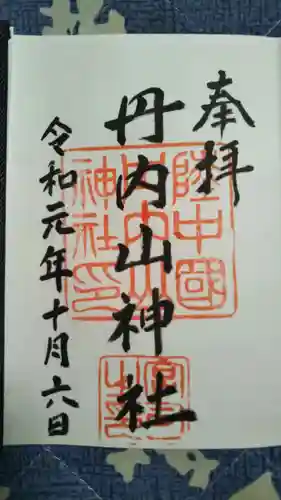 奉拝
丹内山神社
令和元年十月六日
陸中國
丹内山
神社印